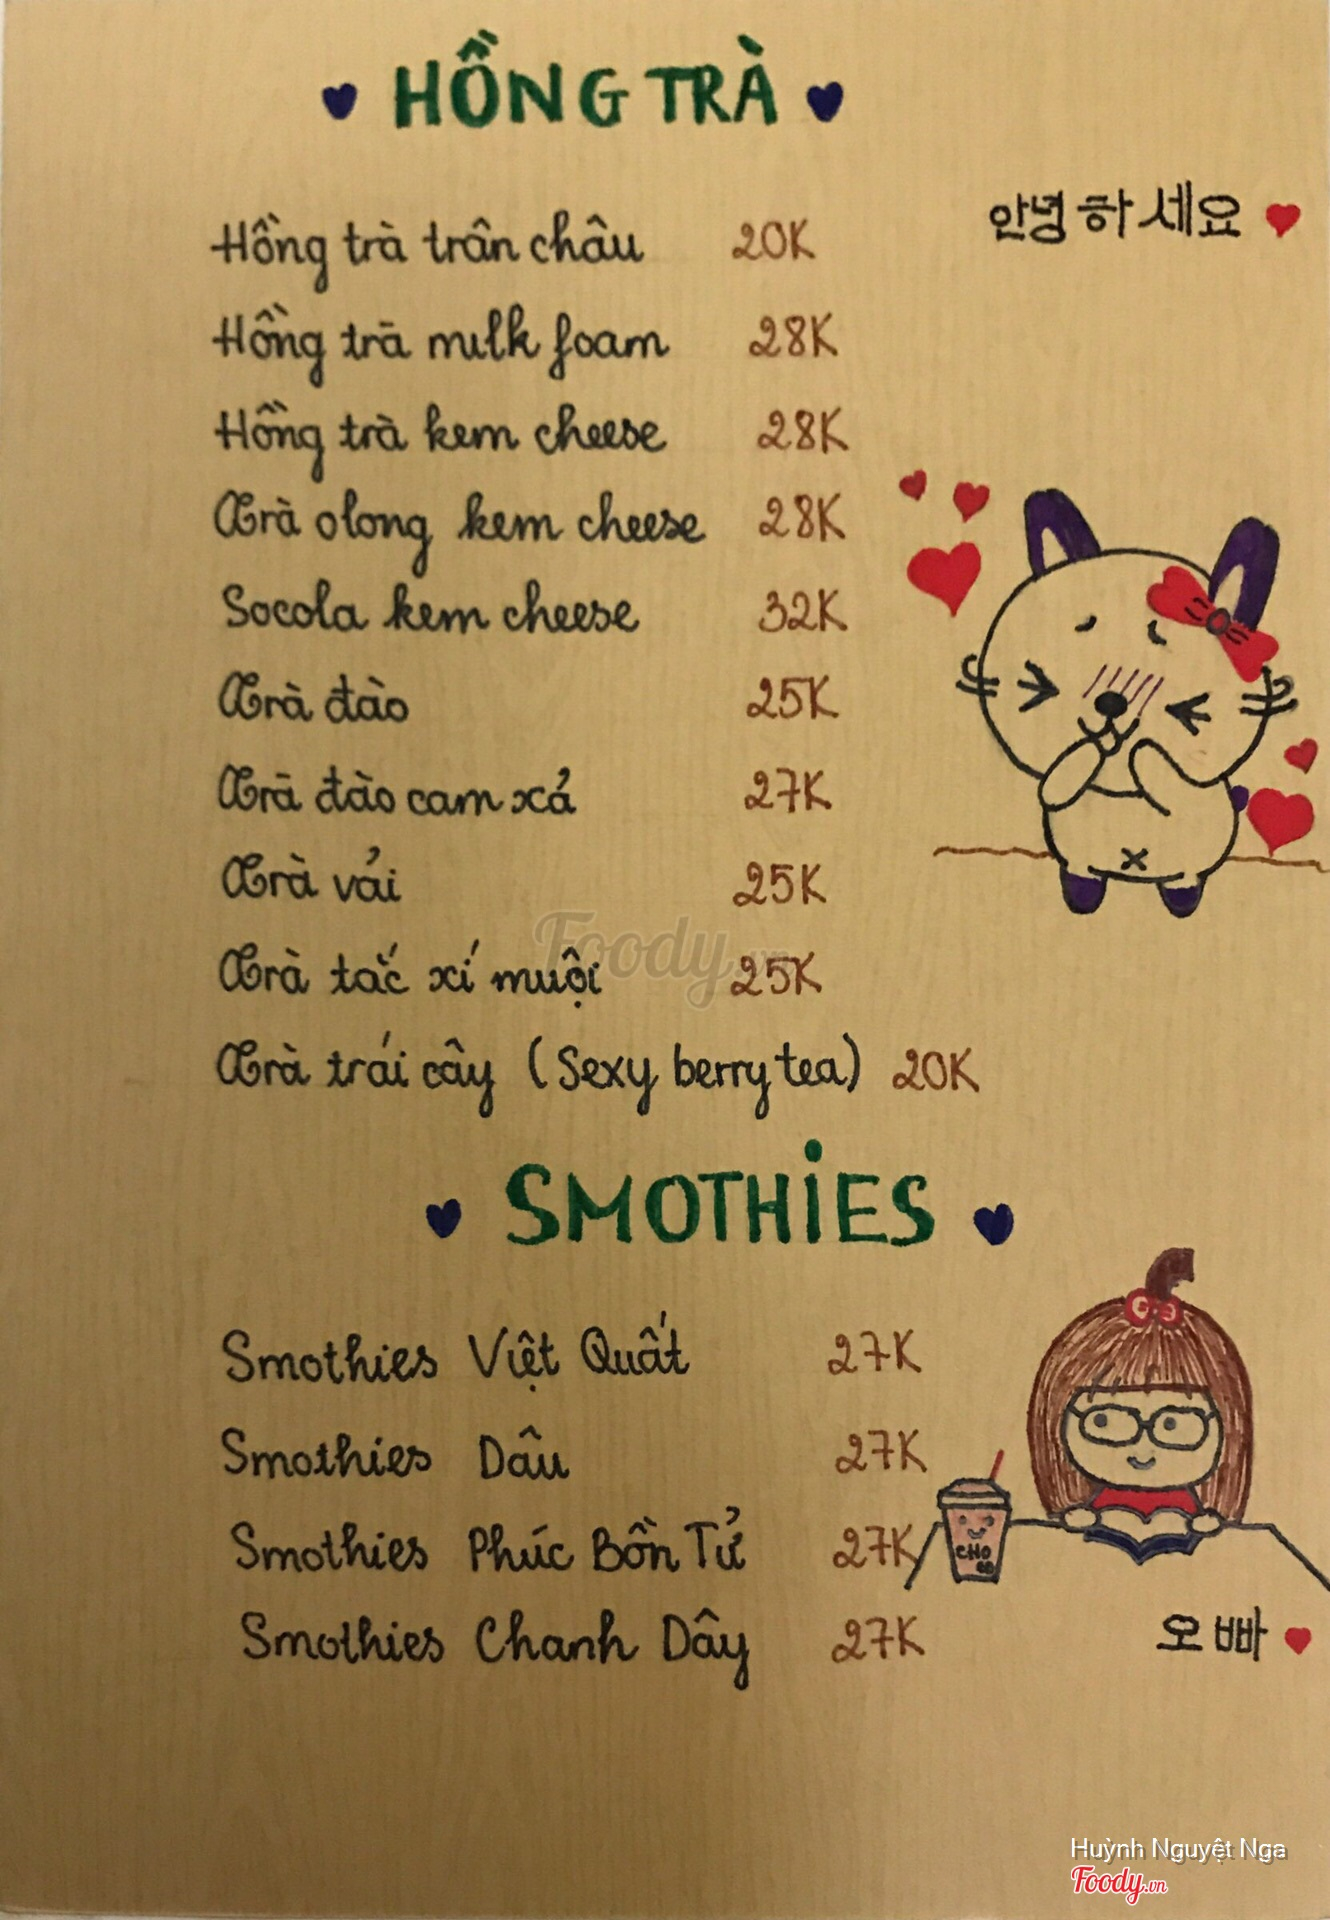 HỒNG TRÀ
안녕하세요
Hồng trà trân châu 20K
Hồng trà milk foam 28K
Hồng trà kem cheese 28K
Trà olong kem cheese 28K
Socola kem cheese 32K
Trà đào 25K
Trà đào cam xả 27K
Trà vải 25K
Trà tắc xí muội 25K
Trà trái cây (Sexy berry tea) 20K
SMOTHiES
Smothies Việt Quất 27K
Smothies Dâu 27K
Smothies Phúc Bồn Tử 27K
Smothies Chanh Dây 27K
CHO
CO
오빠
Foody.vn
Huỳnh Nguyệt Nga
Foody.vn